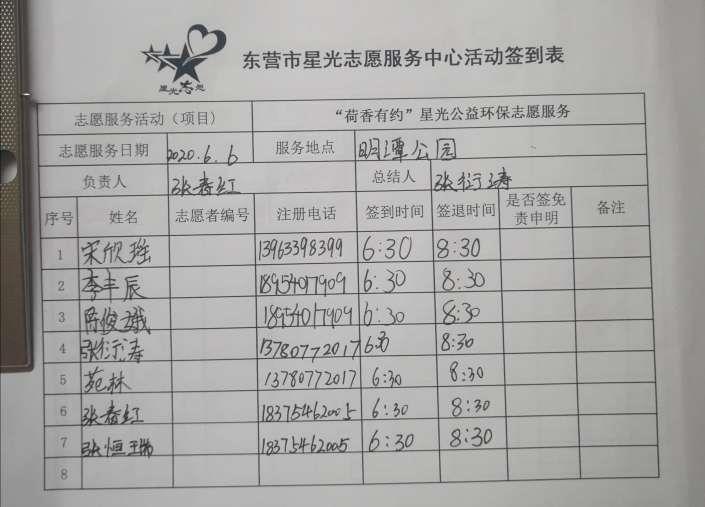 星光志愿
东营市星光志愿服务中心活动签到表
志愿服务活动（项目） “荷香有约”星光公益环保志愿服务
志愿服务日期 2020.6.6 服务地点 明潭公园
负责人 张春红 总结人 张衍涛
序号 姓名 志愿者编号 注册电话 签到时间 签退时间 是否签免责申明 备注
1 宋欣瑶 13963398399 6:30 8:30
2 李丰辰 18954017909 6:30 8:30
3 陈俊娥 18954017909 6:30 8:30
4 张衍涛 13780772017 6:30 8:30
5 苑林 13780772017 6:30 8:30
6 张春红 18375462005 6:30 8:30
7 张恒瑞 18375462005 6:30 8:30
8